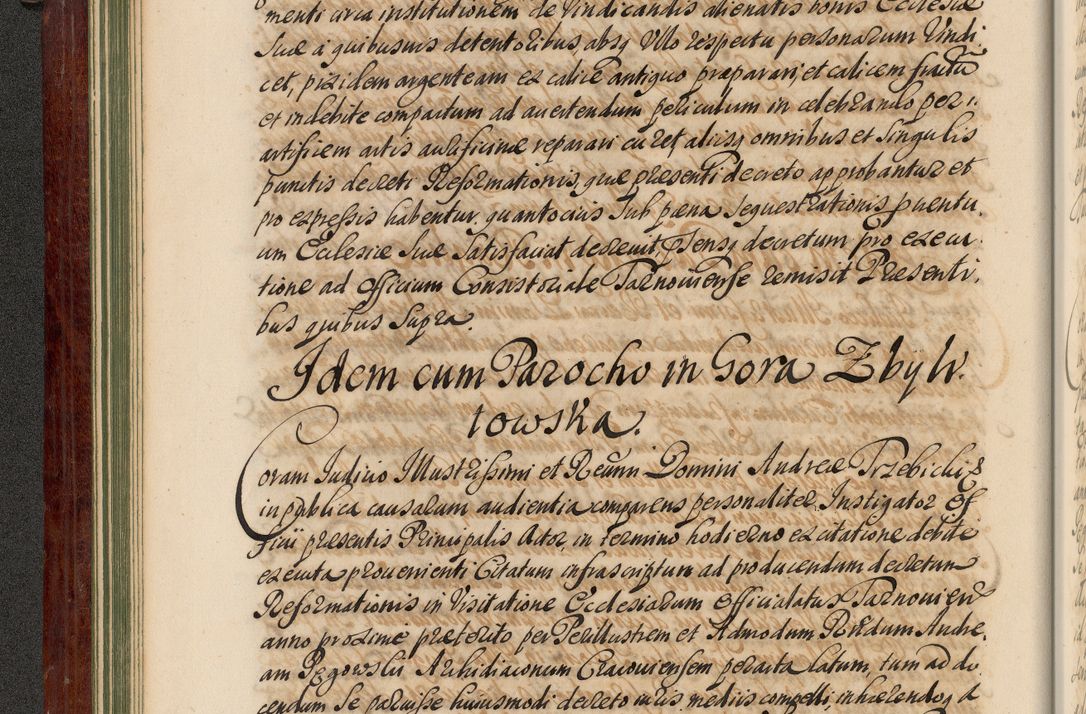 menti circa institutionem de Vindicandis alienatis bonis Ecclesiæ
Suæ a quibusuis detentoribus, absq Vllo respectu personarum Vindi
cet, pixidem argenteam ex calice antiquo præparari, et calicem fractū
et indebite compactum ad auertendum periculum in celebrando per i.
artificem artis aurificinæ reparari curet alijsq omnibus et Singulis
punctis decreti Reformationis, quæ præsenti decreto approbantur et
pro expressis habentur, quantocius Sub pæna Sequestrationis prouentu.
um Ecclesiæ Suæ Satisfaciat decreuit, decretum pro execu
tione ad Officium Consistoriale Tarnouiense remisit Præsenti,
bus quibus Supra.
Idem cum Parocho in Gora Zbylv.
towska.
Coram Iudicio Illustrissimi et Reūmi Domini Andreæ Trzebicki &
in publica causarum audientia comparens personaliter Instigator Of
ficii præsentis Principalis Actor, in termino hodierno ex citatione debite
executa proueniente Citatum infrascriptum ad producendum decretum
Reformationis in Visitatione Ecclesiarum Officialatus Tarnouien
anno proxime præterito per Perillustrem et Admodum Rndum Andre,
am Pęgowski Archidiaconum Cracouiensem peracta latum, tum ad do
cendum Se paruisse huiusmodi decreto iuris mediis compelli, inhærendoq d